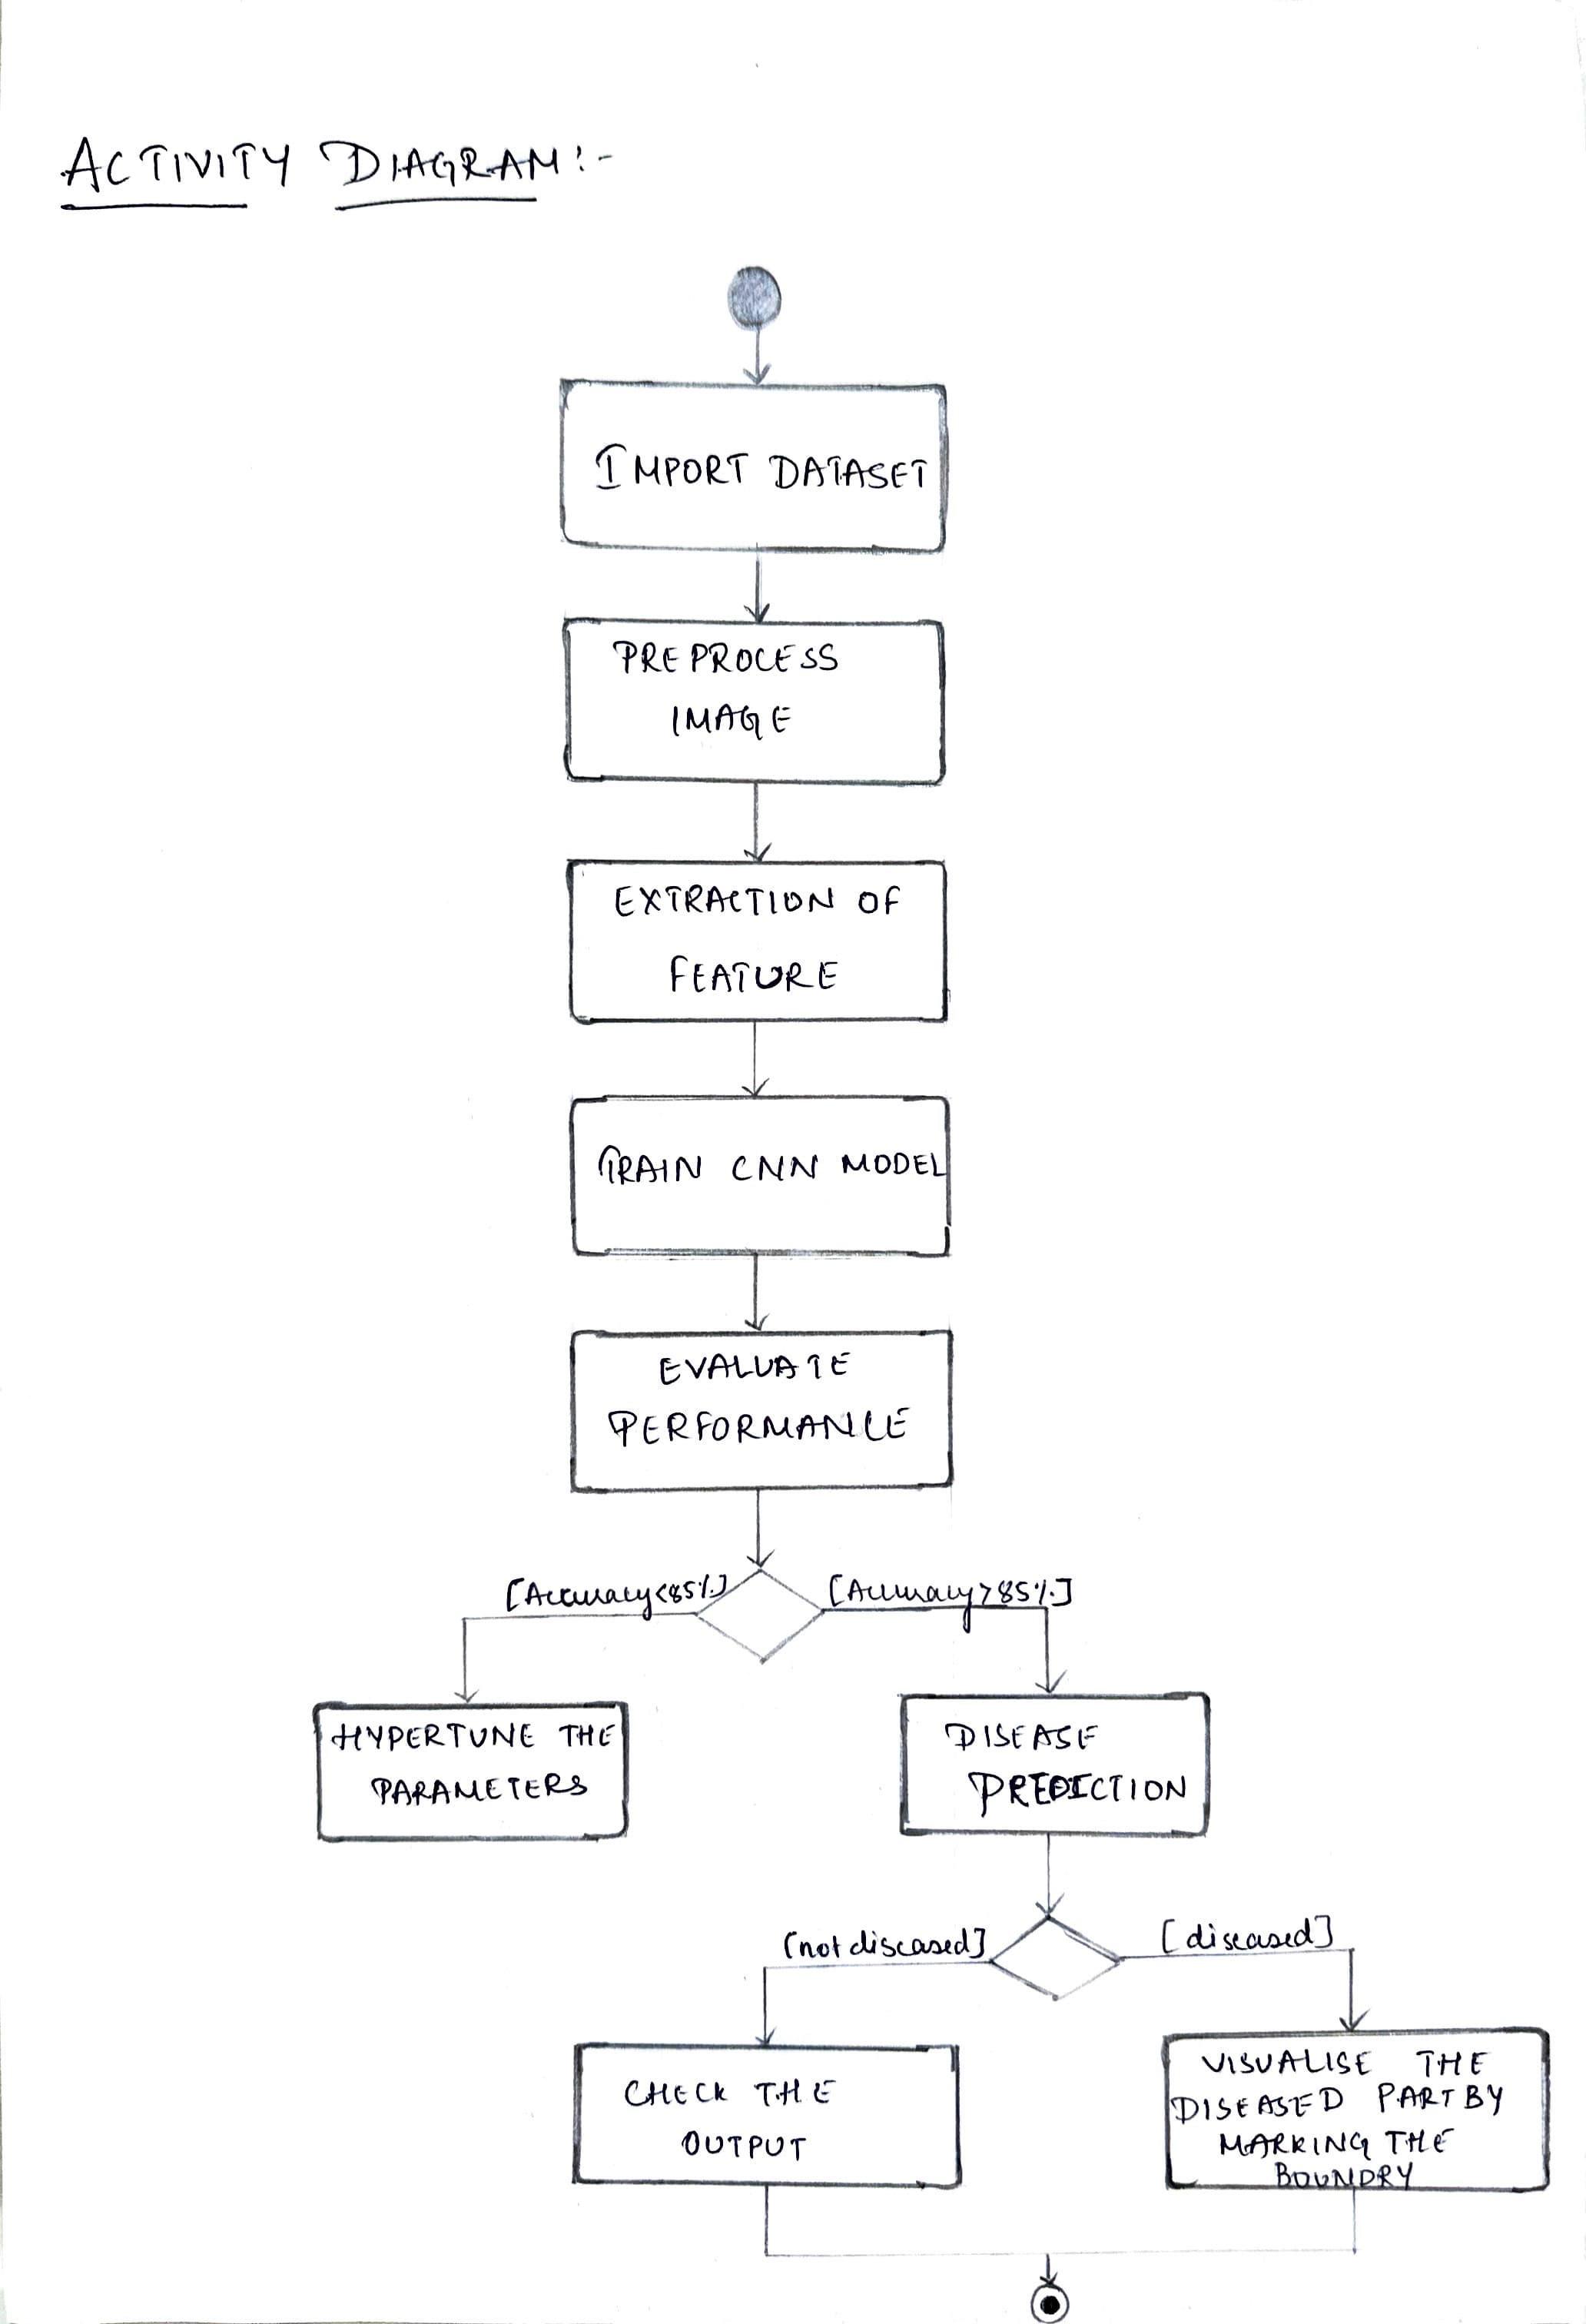 ACTIVITY DIAGRAM:-
IMPORT DATASET
PREPROCESS
IMAGE
EXTRACTION OF
FEATURE
TRAIN CNN MODEL
EVALUATE
PERFORMANCE
[Accuracy<85%] [Accuracy>85%]
HYPERTUNE THE
PARAMETERS
DISEASE
PREDICTION
[not diseased] [diseased]
CHECK THE
OUTPUT
VISUALISE THE
DISEASED PART BY
MARKING THE
BOUNDRY